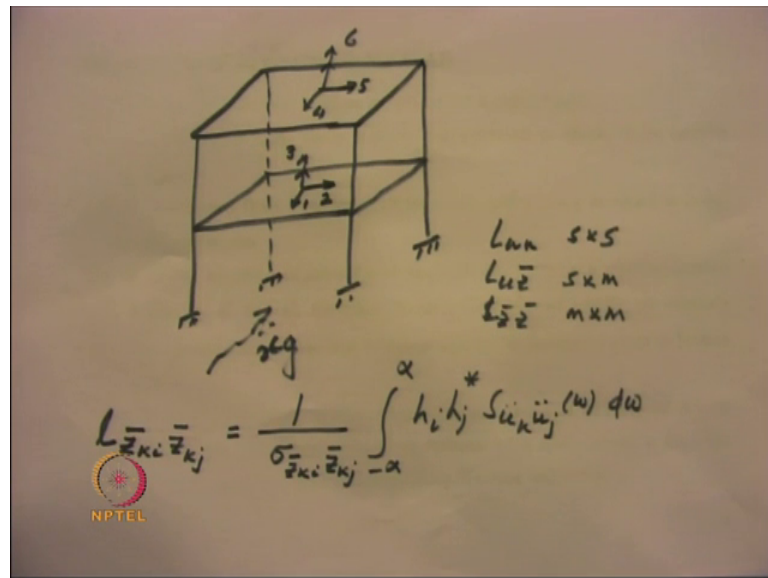 6
5
4
3
2
1
luu s×s
luz̄ s×m
lz̄z̄ m×m
ẍg
α
l z̄ki z̄kj = 1 / σz̄ki z̄kj ∫ hi hj* Sükük̈j (ω) dω
-α
NPTEL